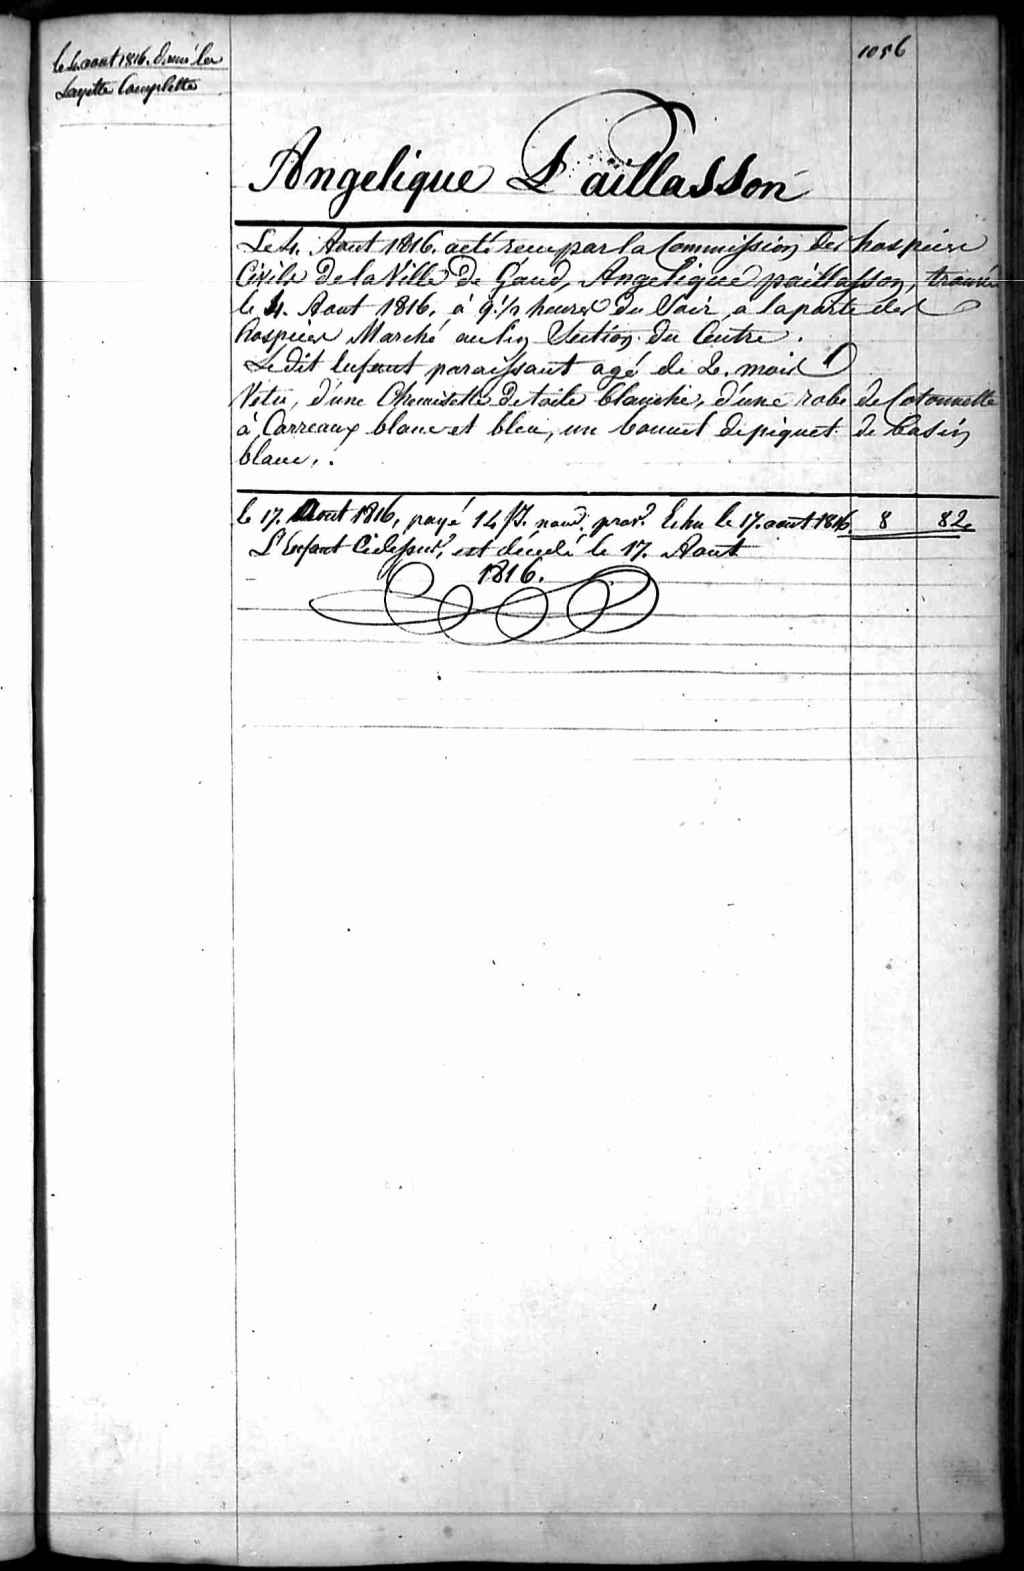 le 4. aout 1816. donné la
Layette Complette
1056
Angelique Paillasson
Le 4. Aout 1816. a été recu par la Commission des hospices
Civils de la Ville de Gand, Angelique paillasson, trouvé
le 4. Aout 1816. à 9 1/2 heures du Soir, a la porte des
hospices Marché au lin Section du Centre.
Le dit Enfant paraissant agé de 2. mois
Vetu, d'une Chemisette de toile blanche, d'une robe de Cotonnette
à Carreaux blanc et bleu, un bonnet de piquet de basin
blanc.
le 17. Aout 1816, payé 14 Js. nour. prov. Echu le 17. aout 1816. 8 82
L'Enfant Cidessus, est décédé le 17. Aout
1816.